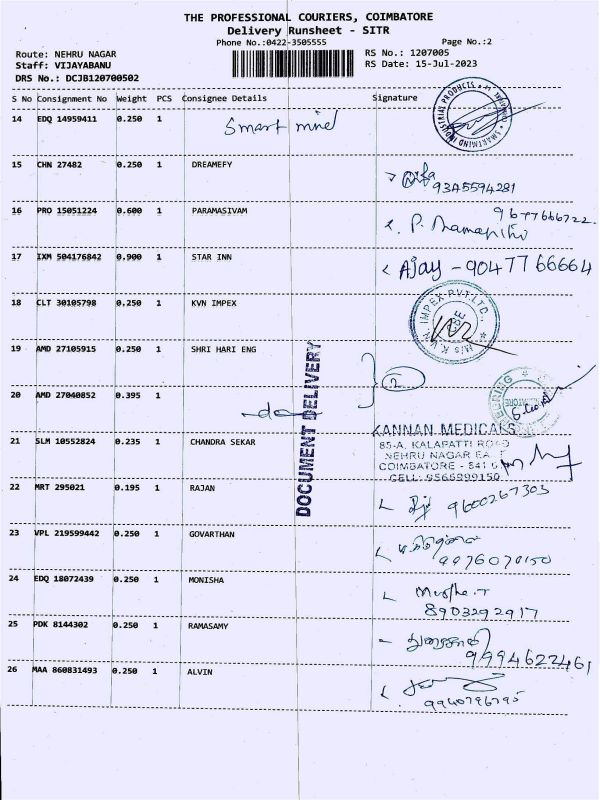 THE PROFESSIONAL COURIERS, COIMBATORE
Delivery Runsheet - SITR
Phone No.:0422-3505555 Page No.:2
Route: NEHRU NAGAR RS No.: 1207005
Staff: VIJAYABANU RS Date: 15-Jul-2023
DRS No.: DCJB120700502
S No Consignment No Weight PCS Consignee Details Signature
14 EDQ 14959411 0.250 1 Smart mind
SMARTMIND INDUSTRIAL PRODUCTS
15 CHN 27482 0.250 1 DREAMEFY
9345594281
16 PRO 15051224 0.600 1 PARAMASIVAM
9677666722
17 IXM 504176842 0.900 1 STAR INN Ajay - 9047766664
18 CLT 30105798 0.250 1 KVN IMPEX
IMPEX PVT.LTD.,
19 AMD 27105915 0.250 1 SHRI HARI ENG
2
20 AMD 27040852 0.395 1 -do-
DOCUMENT DELIVERY
21 SLM 10552824 0.235 1 CHANDRA SEKAR
KANNAN MEDICALS
85-A, KALAPATTI ROAD
NEHRU NAGAR EAST
COIMBATORE - 641
CELL: 9566999150
22 MRT 295021 0.195 1 RAJAN
9600267303
23 VPL 219599442 0.250 1 GOVARTHAN
9976070150
24 EDQ 18072439 0.250 1 MONISHA
8903292917
25 PDK 8144302 0.250 1 RAMASAMY
9994622461
26 MAA 860831493 0.250 1 ALVIN
9940796795